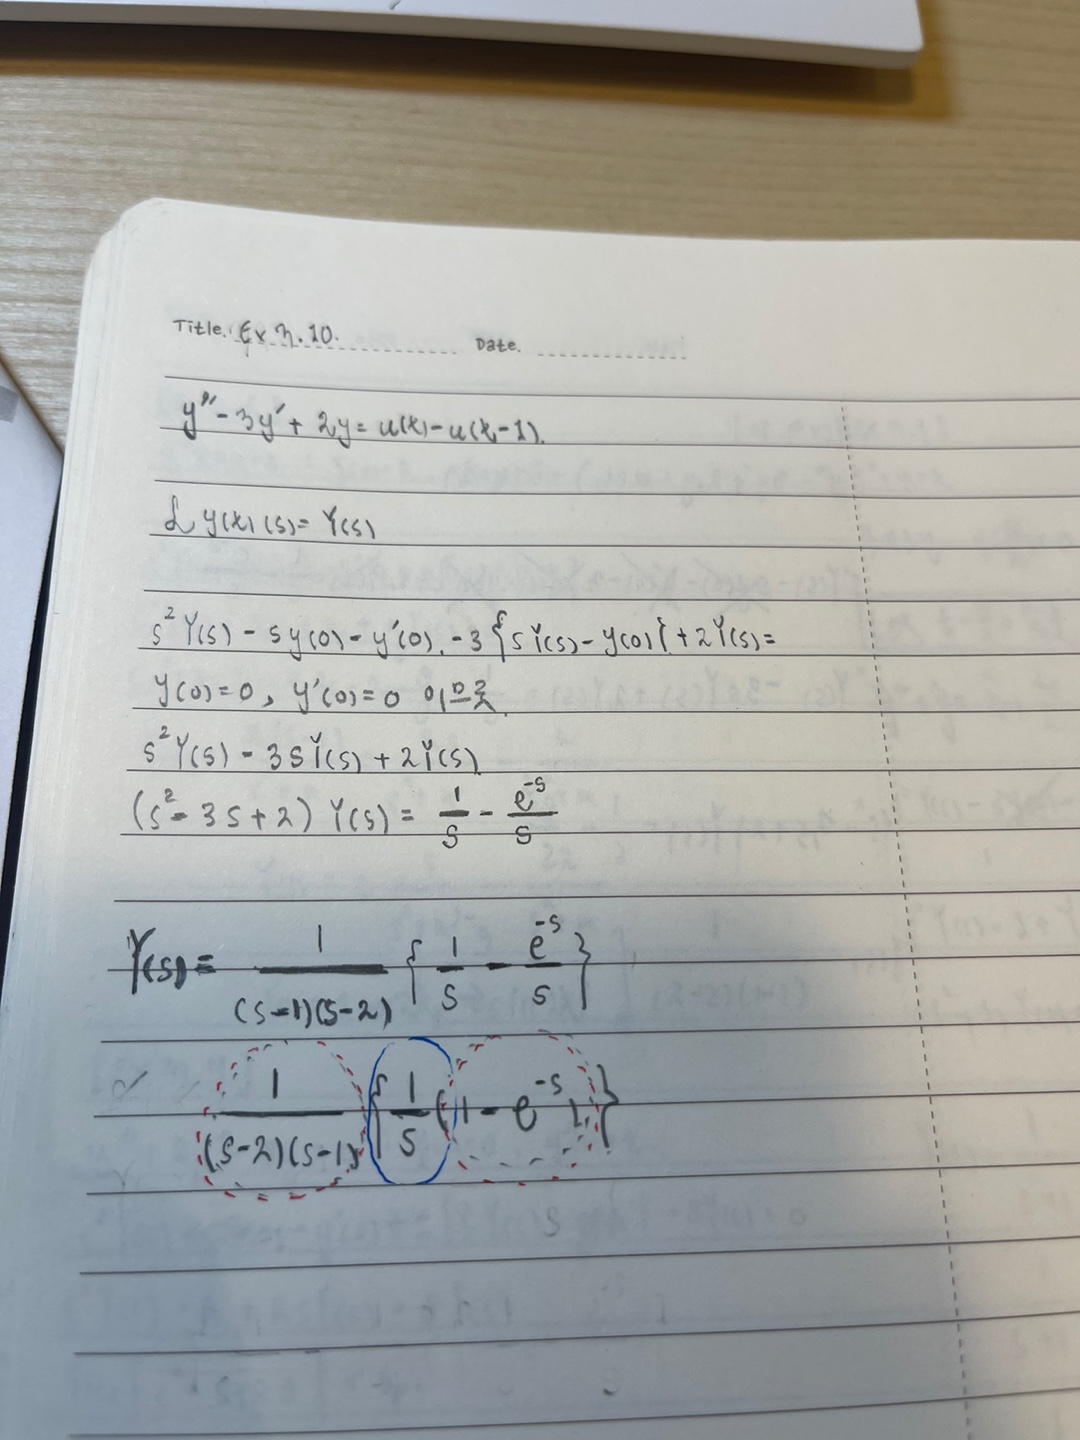 Title. Ex 3.10. Date.
y'' - 3y' + 2y = u(t) - u(t-1).
ℒ y(t) (s) = Y(s)
s² Y(s) - sy(0) - y'(0). - 3 { sY(s) - y(0) } + 2Y(s) =
y(0) = 0, y'(0) = 0 이므로
s² Y(s) - 3sY(s) + 2Y(s)
(s² - 3s + 2) Y(s) = 1/s - e^{-s}/s
Y(s) = 1/((s-1)(s-2)) { 1/s - e^{-s}/s }
1/((s-2)(s-1)) { 1/s (1 - e^{-s}) }